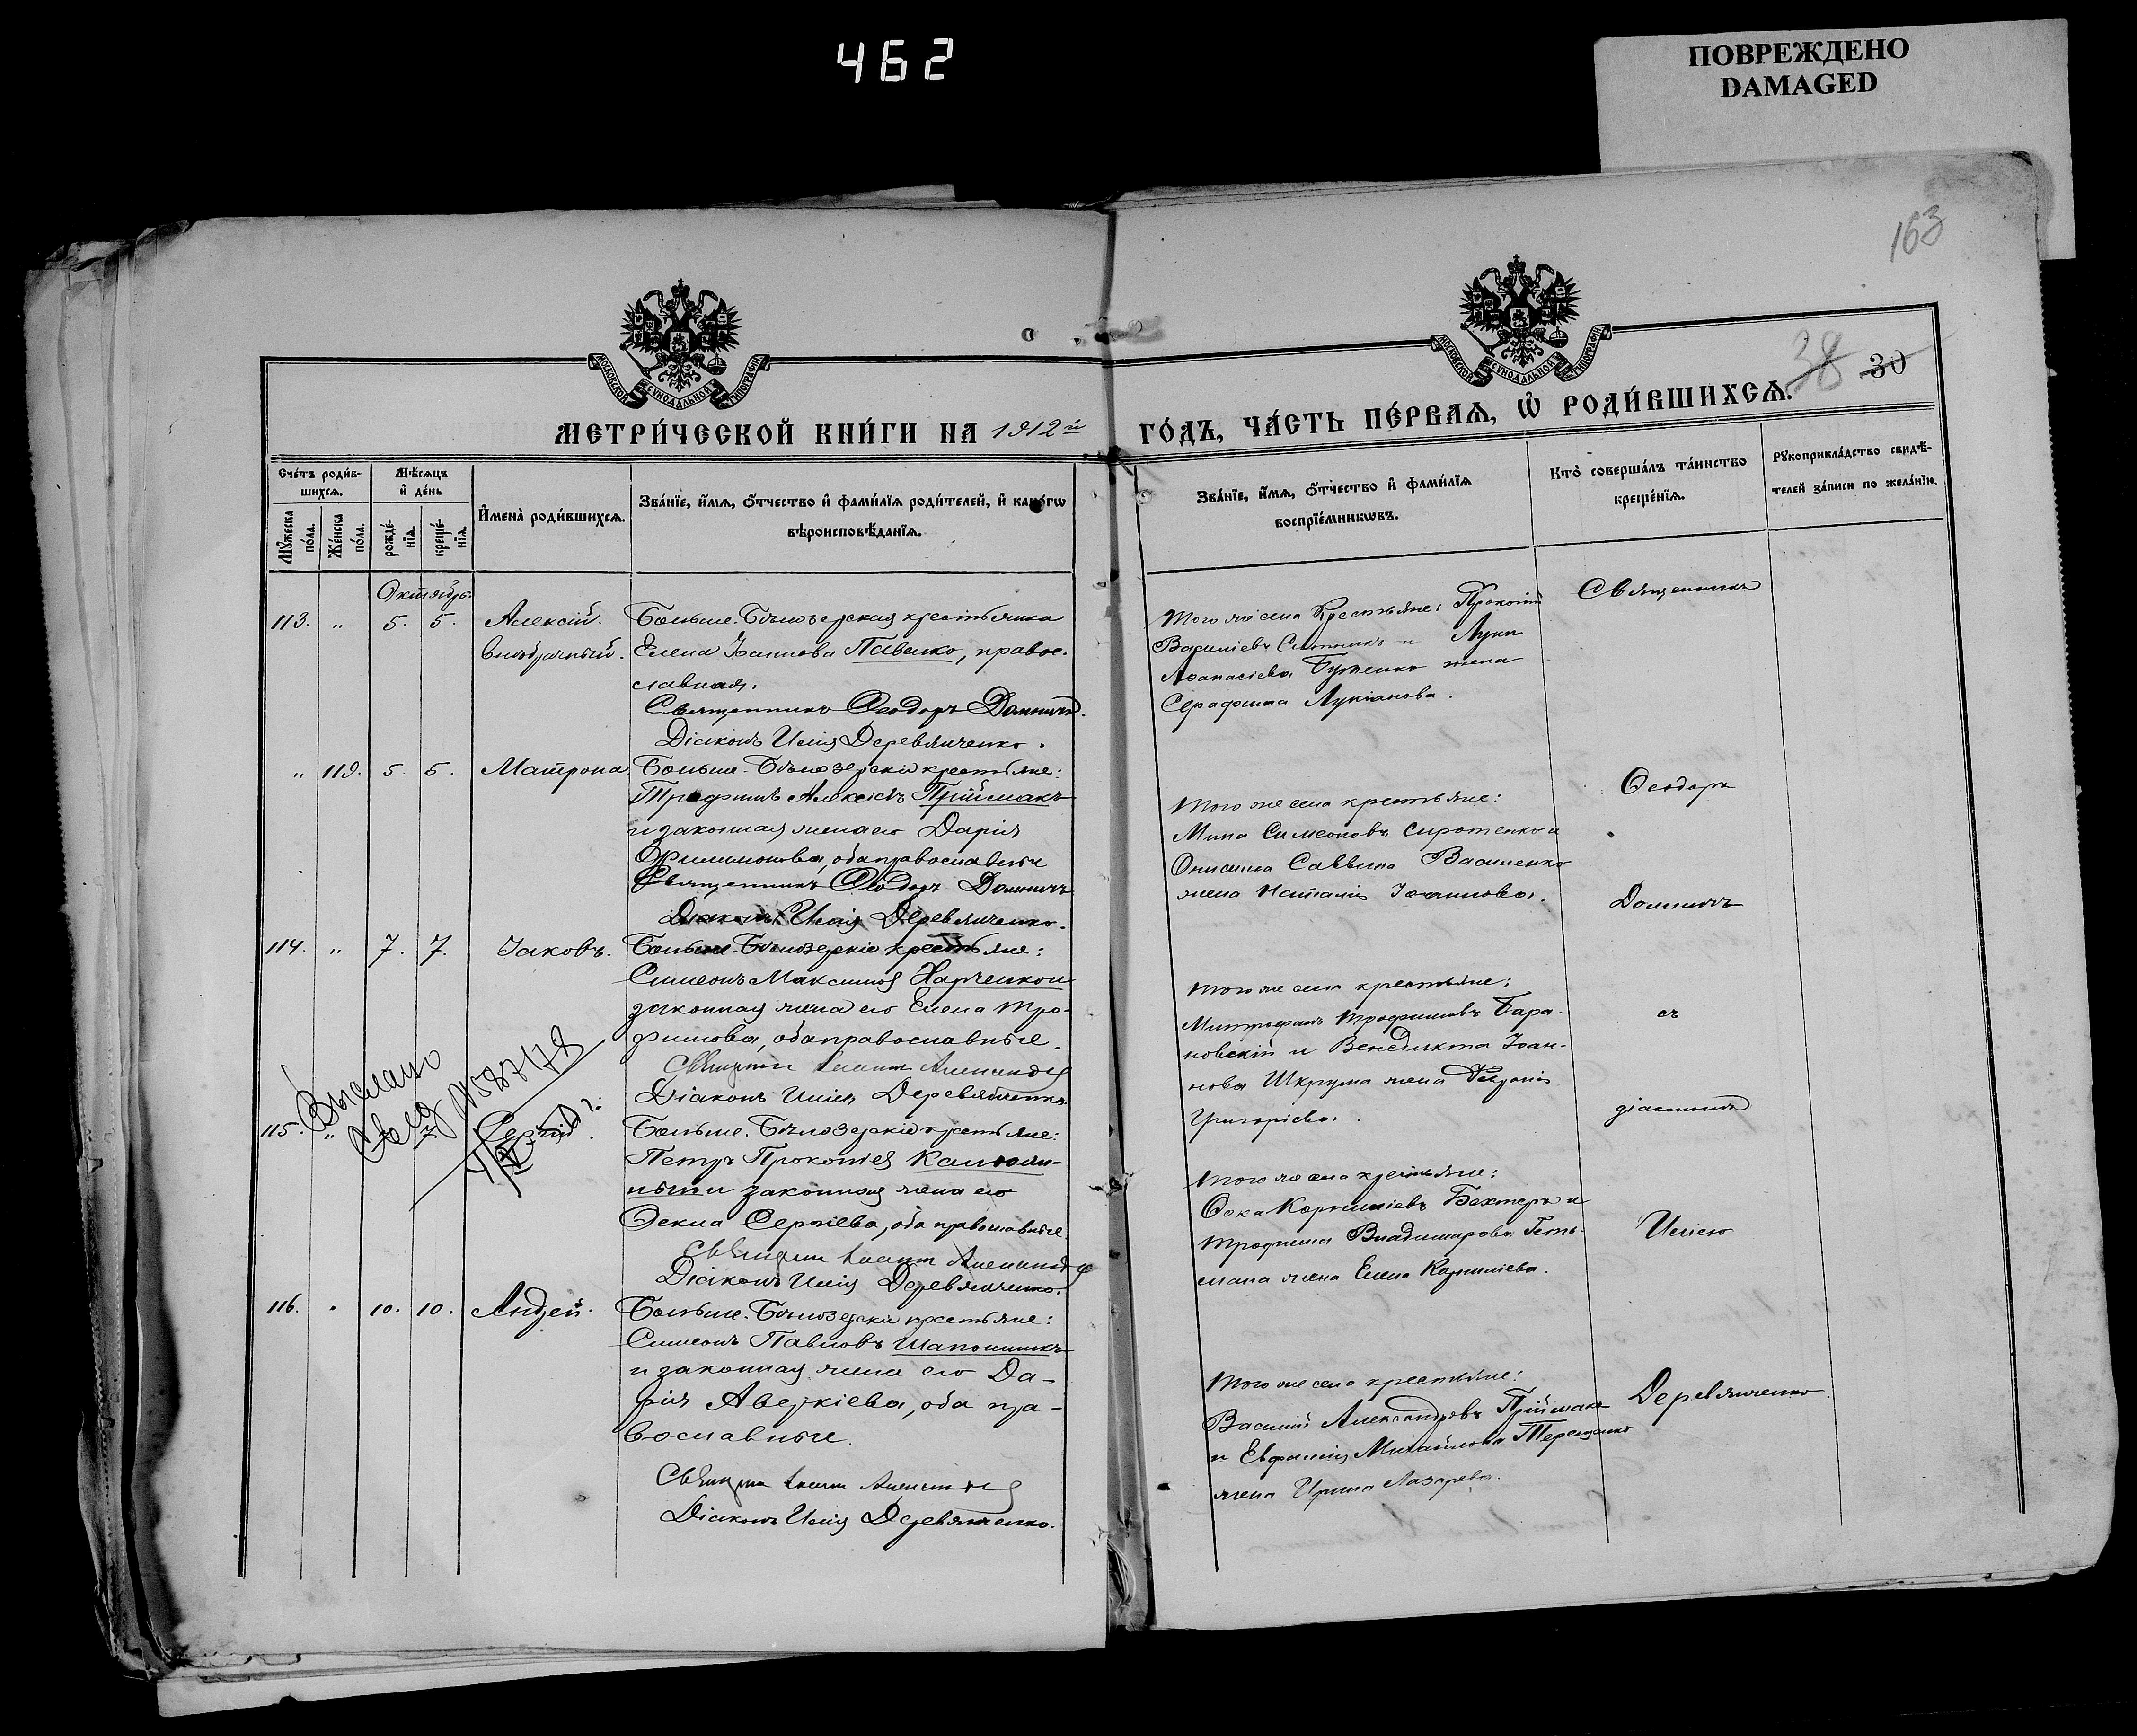 462
ПОВРЕЖДЕНО
DAMAGED
163
МОСКОВСКОЙ СѴНОДАЛЬНОЙ ТИПОГРАФІИ
МОСКОВСКОЙ СѴНОДАЛЬНОЙ ТИПОГРАФІИ
38 30
МЕТРИ́ЧЕСКОЙ КНИ́ГИ НА 1912 й ГО́ДЪ, ЧА́СТЬ ПЕ́РВАЯ, Ѡ҆ РОДИ́ВШИХСѦ.
Сче́тъ роди́в-
шихсѧ.
Мꙋ́жеска по́ла.
Же́нска по́ла.
Мѣ́сѧцъ
и҆ де́нь
рожде́-нїѧ.
креще́-нїѧ.
И҆мена̀ роди́вшихсѧ.
Зва́нїе, и҆́мѧ, ѻ҆́тчество и҆ фами́лїѧ роди́телей, и҆ како́гѡ
вѣроисповѣ́данїѧ.
Зва́нїе, и҆́мѧ, ѻ҆́тчество и҆ фами́лїѧ
воспрїе́мникѡвъ.
Кто̀ соверша́лъ та́инство
креще́нїѧ.
Рꙋкоприкла́дство свидѣ́-
телей за́писи по жела́нїю.
Октябрь.
113. „ 5. 5. Алексій. Больше-Бѣлозерская крестьянка
внѣбрачный. Елена Іоаннова Павенко, правос-
славная.
Священникъ Ѳеодоръ Домничъ.
Діаконъ Илія Деревянченко.
Того же села крестьяне: Прокопій
Василіевъ Слотникъ и Луки
Аѳанасіева Бутенко жена
Серафима Лукіанова.
Священникъ
„ 119. 5. 5. Матрона. Больше-Бѣлозерскіе крестьяне:
Трофимъ Алексіевъ Приймакъ
и законная жена его Дарія
Филимонова, оба православные
Священникъ Ѳеодоръ Домничъ
Діаконъ Илія Деревянченко.
Того же села крестьяне:
Мина Симеоновъ Сиротенко и
Онисима Саввина Василенко
жена Наталія Іоаннова.
Ѳеодоръ
Домничъ
114. „ 7. 7. Іаковъ. Больше-Бѣлозерскіе крестьяне:
Симеонъ Максимовъ Харченко и
законная жена его Елена Тро-
фимова, оба православные.
Діаконъ Илія Деревянченко.
Того же села крестьяне:
Митрофанъ Трофимовъ Бара-
новскій и Венедикта Іоан-
нова Шкрума жена
Григоріева.
съ
діакономъ
Выслано
Свед. № 587178
115. „ 7. Сергій. Больше-Бѣлозерскіе крестьяне:
Петръ Прокопіев
и законная жена его
Ѳекла Сергіева, оба православные.
Діаконъ Илія Деревянченко.
Того же села крестьяне:
Ѳока Корниліевъ Бехтеръ и
Трофима Владимирова Геть-
мана жена Елена Корниліева.
Иліею
116. „ 10. 10. Андрей. Больше-Бѣлозерскіе крестьяне:
Симеонъ Павловъ Шапошникъ
и законная жена его Да-
рія Аверкіева, оба пра-
вославные.
Діаконъ Илія Деревянченко.
Того же села крестьяне:
Василій Александровъ Приймакъ
и Евфимія Михайлова Терещенко
жена Ирина Лазарева.
Деревянченко.